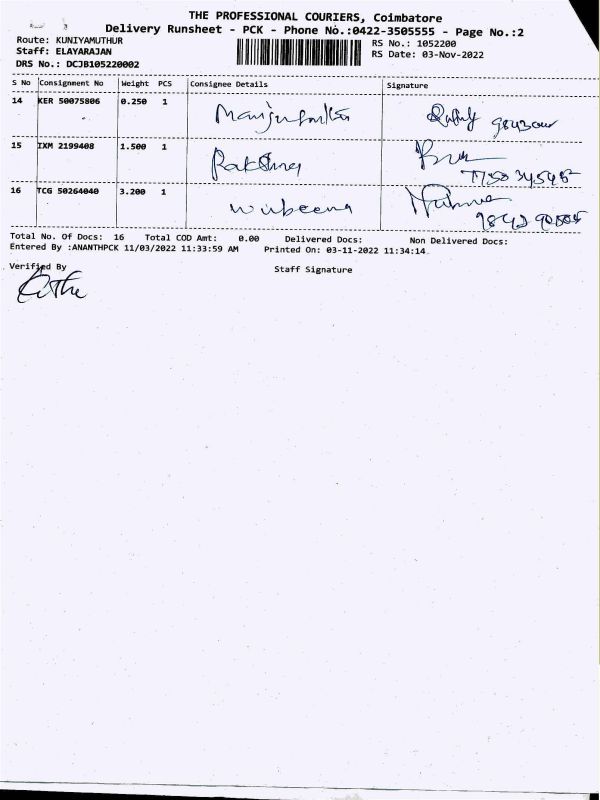 THE PROFESSIONAL COURIERS, Coimbatore
Delivery Runsheet - PCK - Phone No.:0422-3505555 - Page No.:2
Route: KUNIYAMUTHUR
RS No.: 1052200
Staff: ELAYARAJAN
RS Date: 03-Nov-2022
DRS No.: DCJB105220002
S No Consignment No Weight PCS Consignee Details Signature
14 KER 50075806 0.250 1
15 IXM 2199408 1.500 1
16 TCG 50264040 3.200 1
Total No. Of Docs: 16 Total COD Amt: 0.00 Delivered Docs: Non Delivered Docs:
Entered By :ANANTHPCK 11/03/2022 11:33:59 AM Printed On: 03-11-2022 11:34:14
Verified By Staff Signature